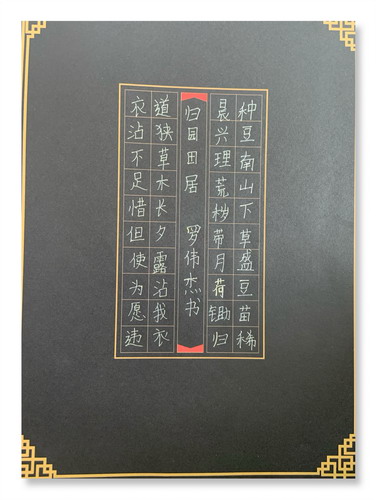 种豆南山下草盛豆苗稀
晨兴理荒秽带月荷锄归
归园田居 罗伟杰书
道狭草木长夕露沾我衣
衣沾不足惜但使为愿违